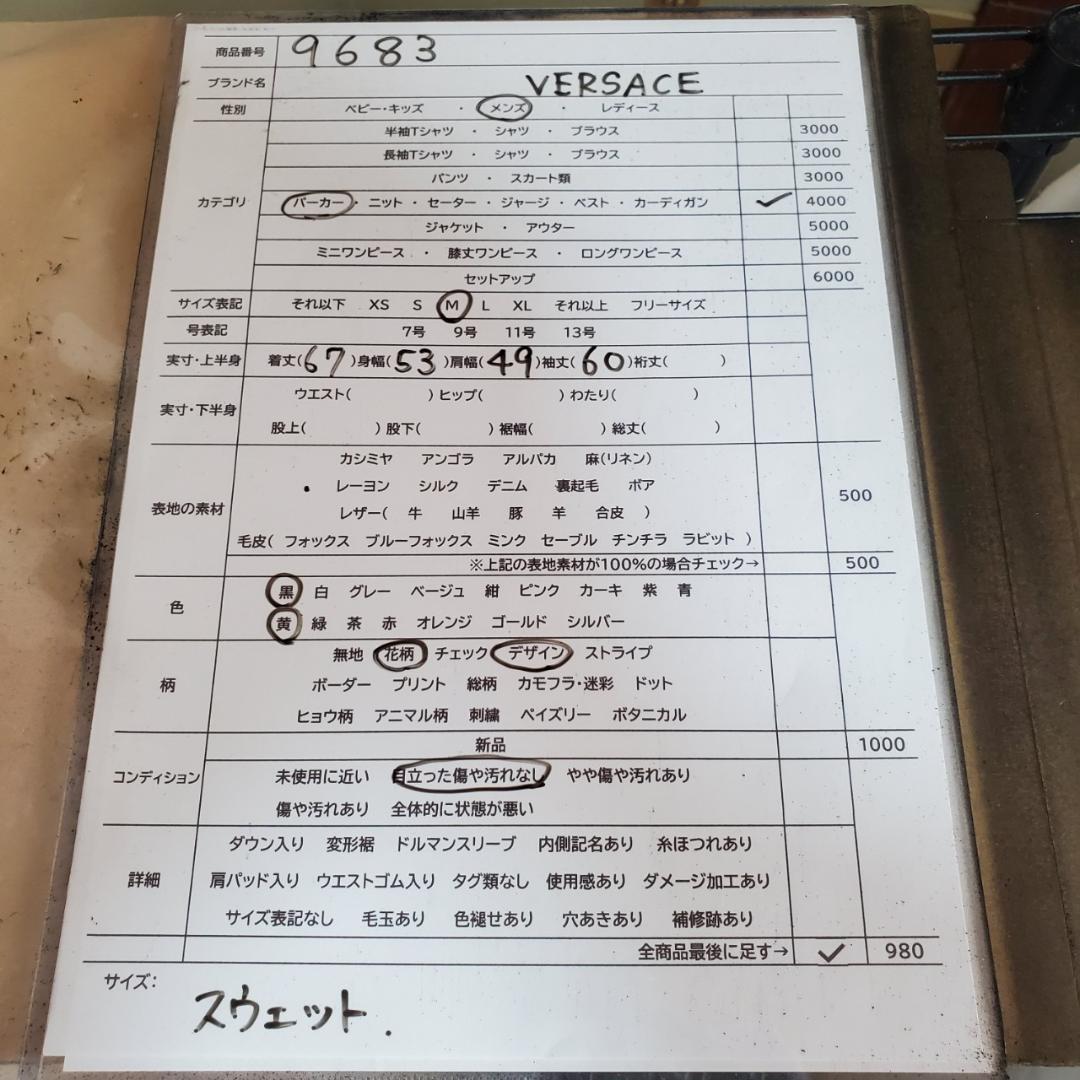 商品番号 9683
ブランド名 VERSACE
性別 ベビー・キッズ ・ メンズ ・ レディース
半袖Tシャツ ・ シャツ ・ ブラウス 3000
長袖Tシャツ ・ シャツ ・ ブラウス 3000
パンツ ・ スカート類 3000
カテゴリ パーカー・ニット・セーター・ジャージ・ベスト・カーディガン ✓ 4000
ジャケット ・ アウター 5000
ミニワンピース ・ 膝丈ワンピース ・ ロングワンピース 5000
セットアップ 6000
サイズ表記 それ以下 XS S M L XL それ以上 フリーサイズ
号表記 7号 9号 11号 13号
実寸・上半身 着丈(67)身幅(53)肩幅(49)袖丈(60)裄丈( )
実寸・下半身 ウエスト( )ヒップ( )わたり( )
股上( )股下( )裾幅( )総丈( )
カシミヤ アンゴラ アルパカ 麻(リネン)
レーヨン シルク デニム 裏起毛 ボア 500
表地の素材 レザー( 牛 山羊 豚 羊 合皮 )
毛皮( フォックス ブルーフォックス ミンク セーブル チンチラ ラビット )
※上記の表地素材が100%の場合チェック→ 500
色 黒 白 グレー ベージュ 紺 ピンク カーキ 紫 青
黄 緑 茶 赤 オレンジ ゴールド シルバー
無地 花柄 チェック デザイン ストライプ
柄 ボーダー プリント 総柄 カモフラ・迷彩 ドット
ヒョウ柄 アニマル柄 刺繍 ペイズリー ボタニカル
新品 1000
コンディション 未使用に近い 目立った傷や汚れなし やや傷や汚れあり
傷や汚れあり 全体的に状態が悪い
ダウン入り 変形裾 ドルマンスリーブ 内側記名あり 糸ほつれあり
詳細 肩パッド入り ウエストゴム入り タグ類なし 使用感あり ダメージ加工あり
サイズ表記なし 毛玉あり 色褪せあり 穴あきあり 補修跡あり
全商品最後に足す→ ✓ 980
サイズ:
スウェット.